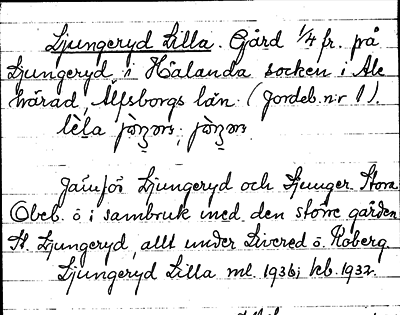 Ljungeryd Lilla. Gård 1/4 fr. på
Ljungeryd, i Hålanda socken i Ale
härad, Älfsborgs län. (Jordeb. n:r 1).
Jämför Ljungeryd och Ljunger Stora
Obeb. ö i sambruk med den större gården
St. Ljungeryd, allt under Livered ö. Roberg
Ljungeryd Lilla ml. 1936; kb. 1932.